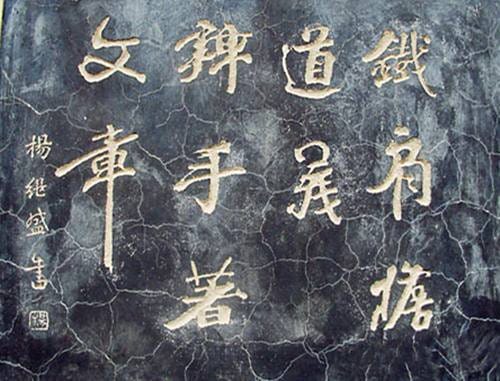 鐵肩擔
道義
辣手著
文章
楊继盛書